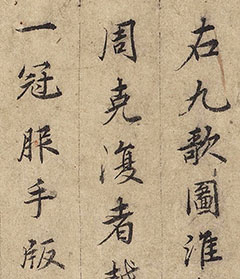 右九歌圖淮
周克復者
一冠服手版